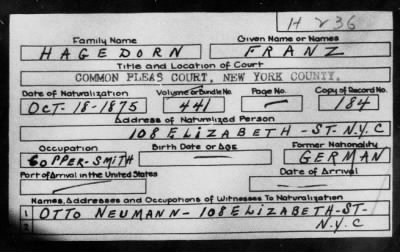 H 236
Family Name Given Name or Names
HAGEDORN FRANZ
Title and Location of Court
COMMON PLEAS COURT, NEW YORK COUNTY.
Date of Naturalization Volume or Bundle No. Page No. Copy of Record No.
OCT-18-1875 441 — 184
Address of Naturalized Person
108 ELIZABETH -ST-N.Y.C
Occupation Birth Date or Age Former Nationality
COPPER-SMITH GERMAN
Port of Arrival in the United States Date of Arrival
Names, Addresses and Occupations of Witnesses To Naturalization
1 OTTO NEUMANN- 108 ELIZABETH-ST-
2 N.Y.C